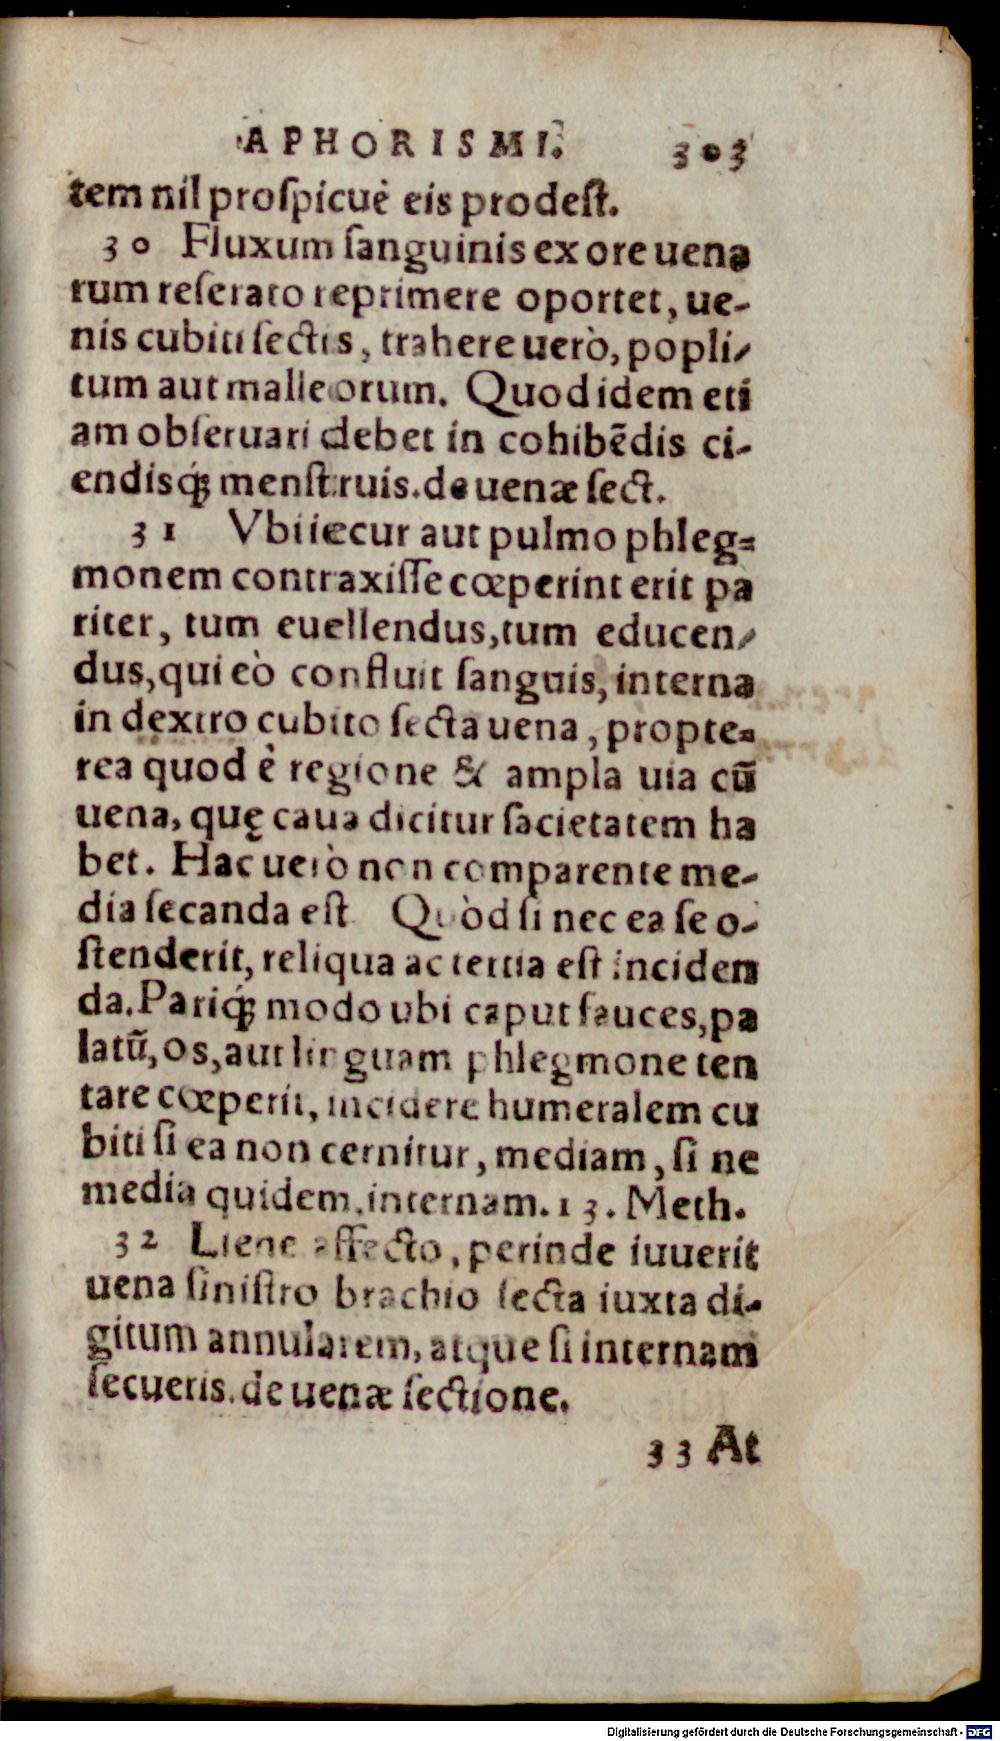 APHORISMI. 303
tem nil proſpicuè eis prodeſt.
30 Fluxum ſanguinis ex ore uena
rum reſerato reprimere oportet, ue-
nis cubiti ſectis, trahere uerò, popli-
tum aut malleorum. Quod idem eti
am obſeruari debet in cohibēdis ci-
endisq́; menſtruis. de uenæ ſect.
31 Vbi iecur aut pulmo phleg-
monem contraxiſſe cœperint erit pa
riter, tum euellendus, tum educen-
dus, qui eò confluit ſanguis, interna
in dextro cubito ſecta uena, propte-
rea quod è regione & ampla uia cū
uena, quę caua dicitur ſacietatem ha
bet. Hac uerò non comparente me-
dia ſecanda eſt Quòd ſi nec ea ſe o-
ſtenderit, reliqua ac tertia eſt inciden
da. Pariq́; modo ubi caput fauces, pa
latū, os, aut linguam phlegmone ten
tare cœperit, incidere humeralem cu
biti ſi ea non cernitur, mediam, ſi ne
media quidem, internam. 13. Meth.
32 Liene affecto, perinde iuuerit
uena ſiniſtro brachio ſecta iuxta di-
gitum annularem, atque ſi internam
ſecueris. de uenæ ſectione.
33 At
Digitalisierung gefördert durch die Deutsche Forschungsgemeinschaft - DFG